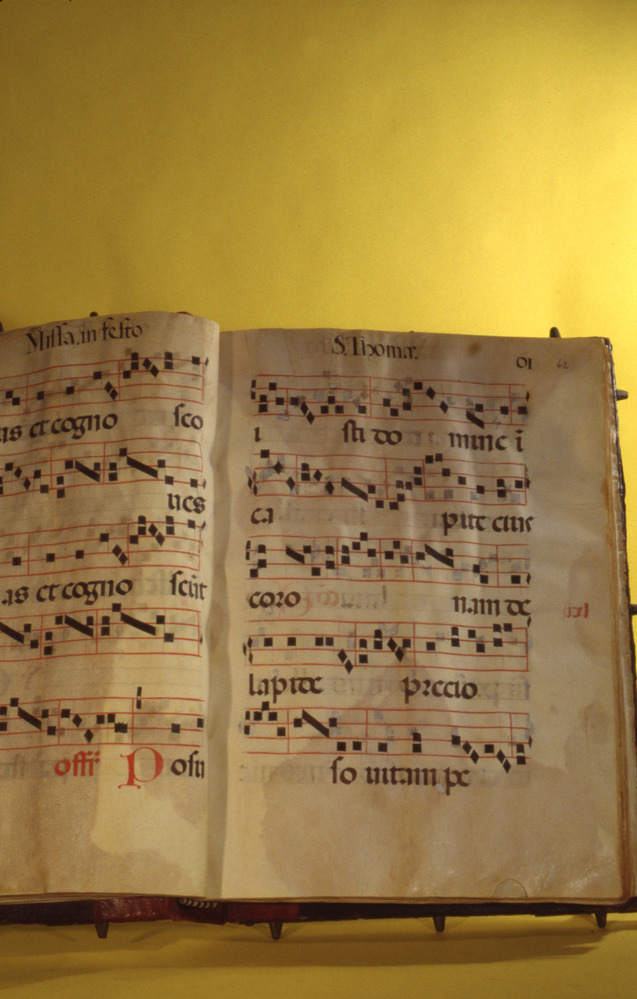 Missa, in festo
as et cogno sco
ves
as et cogno scūt
offī Posu
S. Thomæ.
61 62
i sti do mine i
ca pite eius
coro nam de
lapide precio
so vitam pe